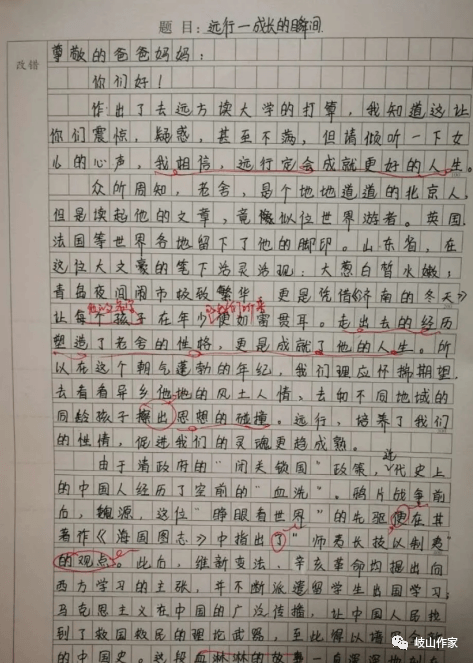 题目：远行—成长的瞬间
改错
尊敬的爸爸妈妈：
你们好！
作出了去远方读大学的打算，我知道这让
你们震惊，疑惑，甚至不满，但请倾听一下女
儿的心声，我相信，远行定会成就更好的人生。
众所周知，老舍，是个地地道道的北京人，
但是读起他的文章，竟像似位世界游者。英国，
法国等世界各地留下了他的脚印。山东省，在
这位大文豪的笔下活灵活现：大葱白皙水嫩；
青岛夜间闹市极致繁华，更是凭借《济南的冬天》
让每个孩子在年少便如雷贯耳。走出去的经历
塑造了老舍的性格，更是成就了他的人生。所
以在这个朝气蓬勃的年纪，我们理应怀揣期望，
去看看异乡他地的风土人情、去和不同地域的
同龄孩子擦出思想的碰撞。远行，培养了我们
的性情，促进我们的灵魂更趋成熟。
由于清政府的"闭关锁国"政策，近代史上
的中国人经历了空前的"血洗"。鸦片战争前
后，魏源，这位"睁眼看世界"的先驱便在其
著作《海国图志》中指出了"师夷长技以制夷"
的观点。此后，维新变法、辛亥革命均提出向
西方学习的主张，并不断派遣留学生出国学习，
马克思主义在中国的广泛传播，让中国人民找
到了救国救民的理论武器，至此得以谱
的中国史。这段血淋淋的故事
岐山作家